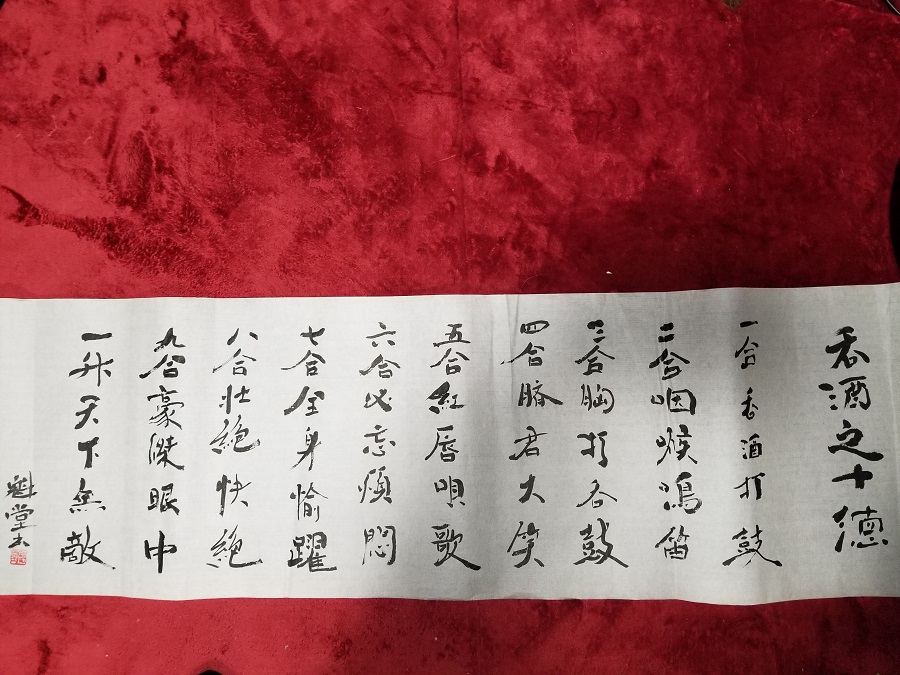 呑酒之十德
一合呑酒打鼓
二合咽喉鳴笛
三合胸打呑鼓
四合臍君大笑
五合紅唇唄歌
六合必忘煩悶
七合全身愉躍
八合壮絶快絶
九合豪傑眼中
一升天下無敵
魁堂书